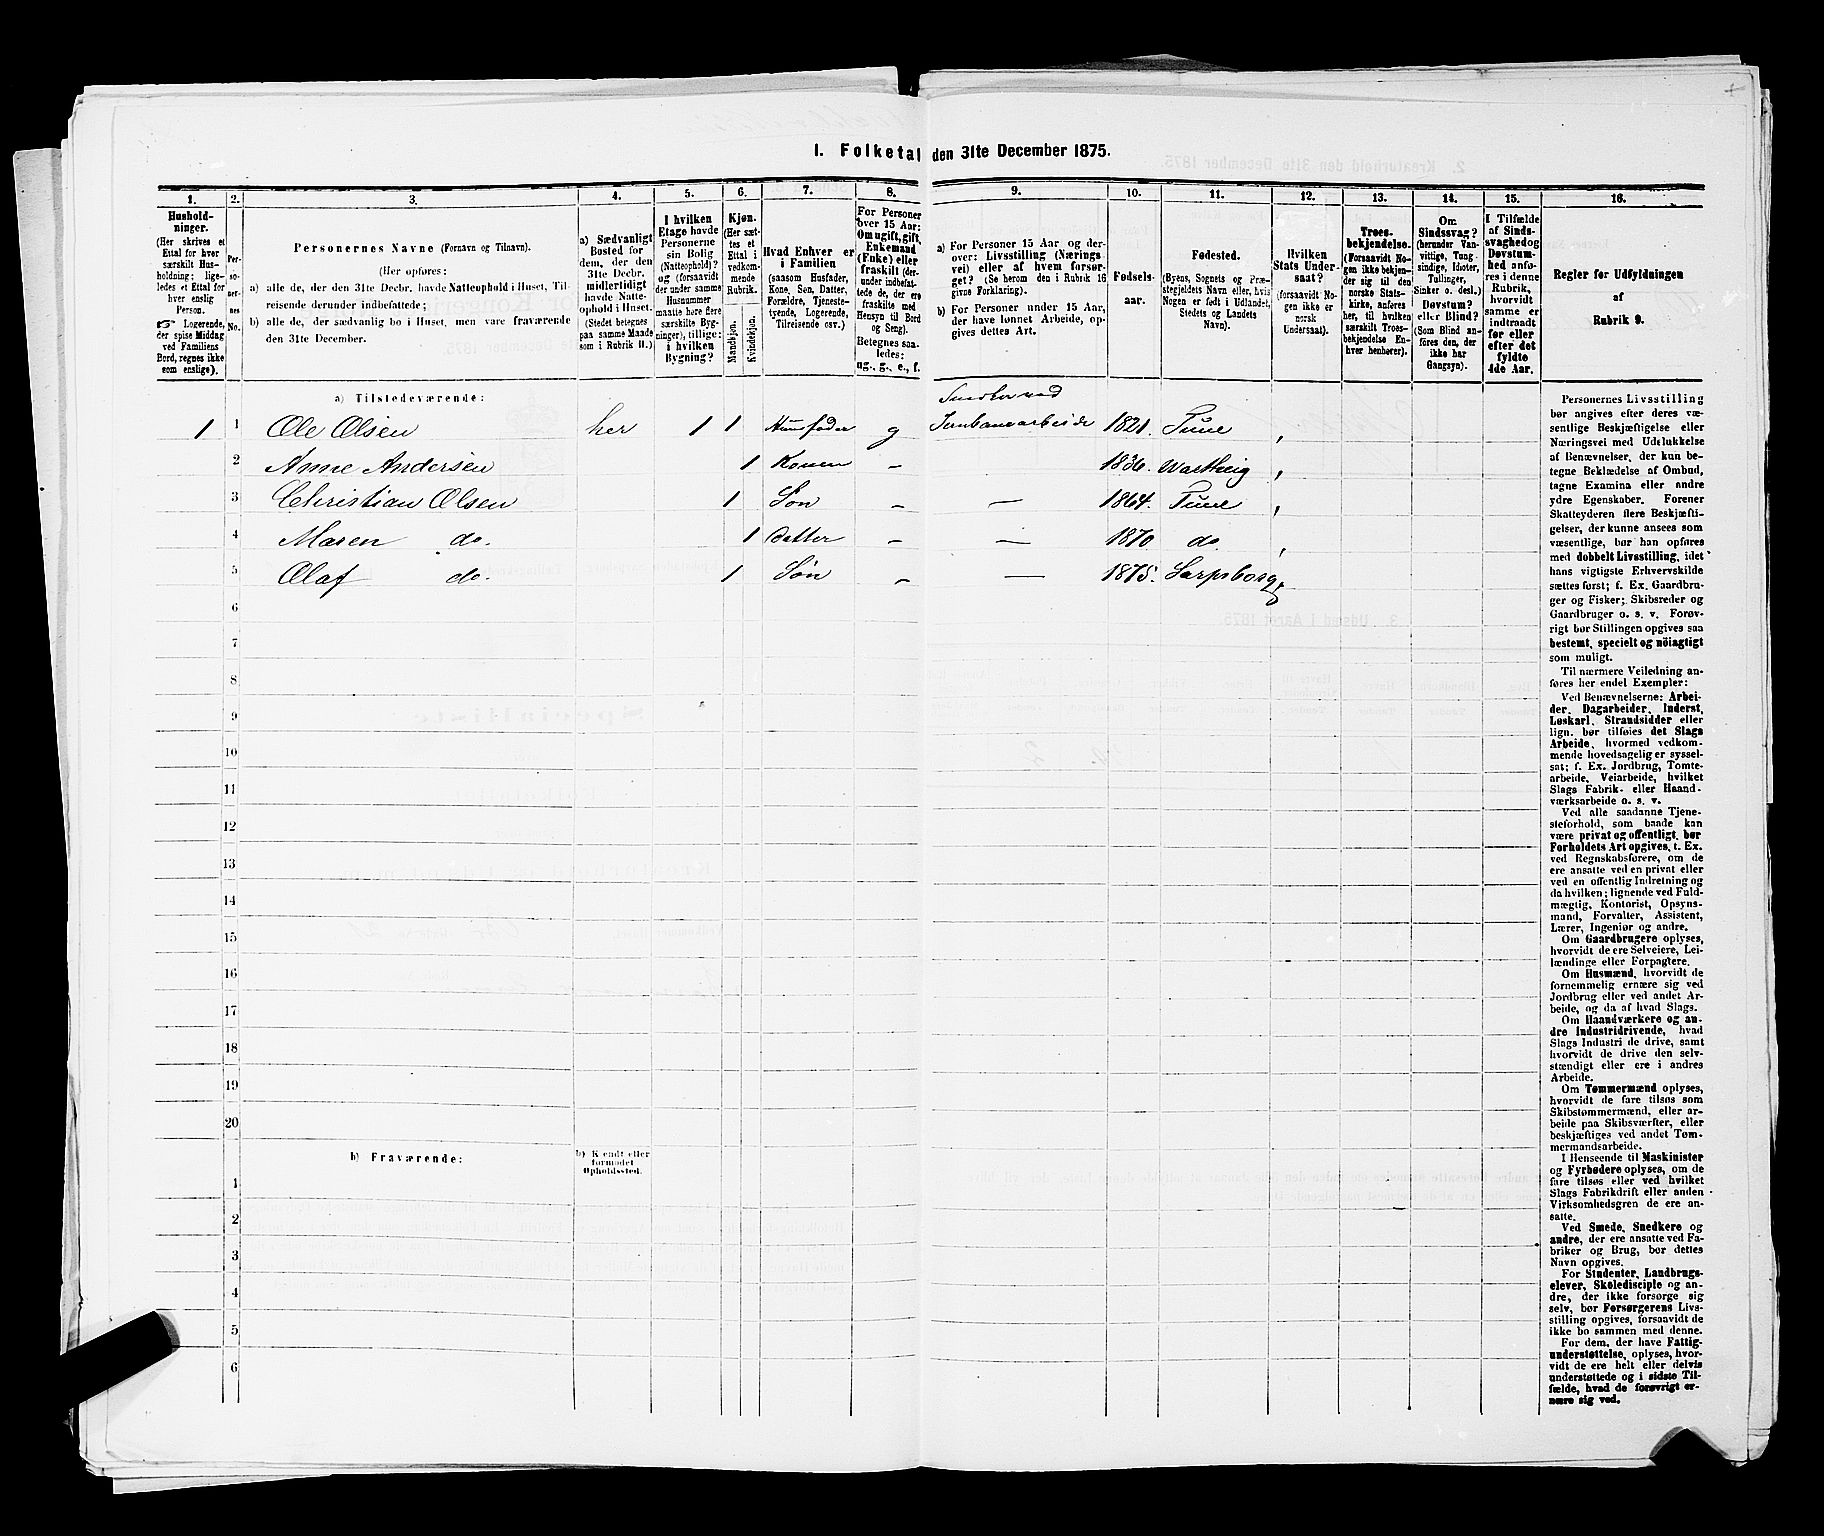 I. Folketal den 31te December 1875.
1. 2. 3. 4. 5. 6. 7. 8. 9. 10. 11. 12. 13. 14. 15. 16.
Hushold-
ninger.
(Her skrives et
Ettal for hver
særskilt Hus-
holdning; lige-
ledes et Ettal for
hver enslig
Person.
☞ Logerende,
der spise Middag
ved Familiens
Bord, regnes ikke
som enslige).
Per-
so-
ner-
nes
No.
Personernes Navne (Fornavn og Tilnavn).
(Her opføres:
a) alle de, der den 31te Decbr. havde Natteophold i Huset, Til-
reisende derunder indbefattede;
b) alle de, der sædvanlig bo i Huset, men vare fraværende
den 31te December.
a) Sædvanligt
Bosted for
dem, der den
31te Decbr.
midlertidigt
havde Natte-
ophold i Huset.
(Stedet betegnes
paa samme Maade
som i Rubrik 11.)
I hvilken
Etage havde
Personerne
sin Bolig
(Natteophold)?
og (forsaavidt
der under samme
Husnummer
maatte høre flere
særskilte Byg-
ninger), tillige:
i hvilken
Bygning?
Kjøn.
(Her sæt-
tes et
Ettal i
vedkom-
mende
Rubrik.
Mandkjøn.
Kvindekjøn.
Hvad Enhver er
i Familien
(saasom Husfader,
Kone, Søn, Datter,
Forældre, Tjeneste-
tyende, Logerende,
Tilreisende osv.)
For Personer
over 15 Aar:
Om ugift, gift,
Enkemand
(Enke) eller
fraskilt (der-
under indbefat-
tede de, der ere
fraskilte med
Hensyn til Bord
og Seng).
Betegnes saa-
ledes:
ug., g., e., f.
a) For Personer 15 Aar og der-
over: Livsstilling (Nærings-
vei) eller af hvem forsør-
get? (Se herom den i Rubrik 16
givne Forklaring).
b) For Personer under 15 Aar,
der have lønnet Arbeide, op-
gives dettes Art.
Fødsels-
aar.
Fødested.
(Byens, Sognets og Præ-
stegjeldets Navn eller, hvis
Nogen er født i Udlandet,
Stedets og Landets
Navn).
Hvilken
Stats Under-
saat?
(forsaavidt No-
gen ikke er
norsk
Undersaat).
Troes-
bekjendelse.
(Forsaavidt No-
gen ikke bekjen-
der sig til den
norske Stats-
kirke, anføres
her, til hvilken
særskilt Troes-
bekjendelse En-
hver henhører).
Om
Sindssvag?
(herunder Van-
vittige, Tung-
sindige, Idioter,
Tullinger,
Sinker o. desl.)
Døvstum?
eller Blind?
(Som Blind an-
føres den, der
ikke har
Gangsyn).
I Tilfælde
af Sinds-
svaghed og
Døvstum-
hed anfø-
res i denne
Rubrik,
hvorvidt
samme er
indtraadt
før eller
efter det
fyldte
4de Aar.
Regler for Udfyldningen
af
Rubrik 9.
a) Tilstedeværende:
1 1 Ole Olsen her 1 1 Husfader g Snedker ved Jernbanearbeide 1821. Tune ,
2 Anne Andersen 1 Konen – 1836. Warteig ,
3 Christian Olsen 1 Søn – — 1864. Tune ,
4 Maren do. 1 Datter – — 1870. do ,
5 Olaf do. 1 Søn – — 1875. Sarpsborg ,
6
7
8
9
10
11
12
13
14
15
16
17
18
19
20
b) Fraværende:
b) Kjendt eller
formodet
Opholdssted.
1
2
3
4
5
6
Personernes Livsstilling
bør angives efter deres væ-
sentlige Beskjæftigelse eller
Næringsvei med Udelukkelse
af Benævnelser, der kun be-
tegne Beklædelse af Ombud,
tagne Examina eller andre
ydre Egenskaber. Forener
Skatteyderen flere Beskjæfti-
gelser, der kunne ansees som
væsentlige, bør han opføres
med dobbelt Livsstilling, idet
hans vigtigste Erhvervskilde
sættes først; f. Ex. Gaardbru-
ger og Fisker; Skibsreder og
Gaardbruger o. s. v. Forøv-
rigt bør Stillingen opgives saa
bestemt, specielt og nøiagtigt
som muligt.
Til nærmere Veiledning an-
føres her endel Exempler:
Ved Benævnelserne: Arbei-
der, Dagarbeider, Inderst,
Løskarl, Strandsidder eller
lign. bør tilføies det Slags
Arbeide, hvormed vedkom-
mende hovedsagelig er syssel-
sat; f. Ex. Jordbrug, Tomte-
arbeide, Veiarbeide, hvilket
Slags Fabrik- eller Haand-
værksarbeide o. s. v.
Ved alle saadanne Tjene-
steforhold, som baade kan
være privat og offentligt, bør
Forholdets Art opgives, t. Ex.
ved Regnskabsførere, om de
ere ansatte ved en privat eller
ved en offentlig Indretning og
da hvilken; lignende ved Fuld-
mægtig, Kontorist, Opsyns-
mand, Forvalter, Assistent,
Lærer, Ingeniør og andre.
Om Gaardbrugere oplyses,
hvorvidt de ere Selveiere, Lei-
lændinge eller Forpagtere.
Om Husmænd, hvorvidt de
fornemmelig ernære sig ved
Jordbrug eller ved andet Ar-
beide, og da af hvad Slags.
Om Haandværkere og an-
dre Industridrivende, hvad
Slags Industri de drive, samt
hvorvidt de drive den selv-
stændigt eller ere i andres
Arbeide.
Om Tømmermænd oplyses,
hvorvidt de fare tilsøs som
Skibstømmermænd, eller ar-
beide paa Skibsværfter, eller
beskjæftiges ved andet Tøm-
mermandsarbeide.
I Henseende til Maskinister
og Fyrbødere oplyses, om de
fare tilsøs eller ved hvilket
Slags Fabrikdrift eller anden
Virksomhedsgren de ere an-
satte.
Ved Smede, Snedkere og
andre, der ere ansatte ved Fa-
briker og Brug, bør dettes
Navn opgives.
For Studenter, Landbrugs-
elever, Skoledisciple og an-
dre, der ikke forsørge sig
selv, bør Forsørgerens Livs-
stilling opgives, forsaavidt de
ikke bo sammen med denne.
For dem, der have Fattig-
understøttelse, oplyses, hvor-
vidt de ere helt eller delvis
understøttede og i sidste Til-
fælde, hvad de forøvrigt er-
nære sig ved.